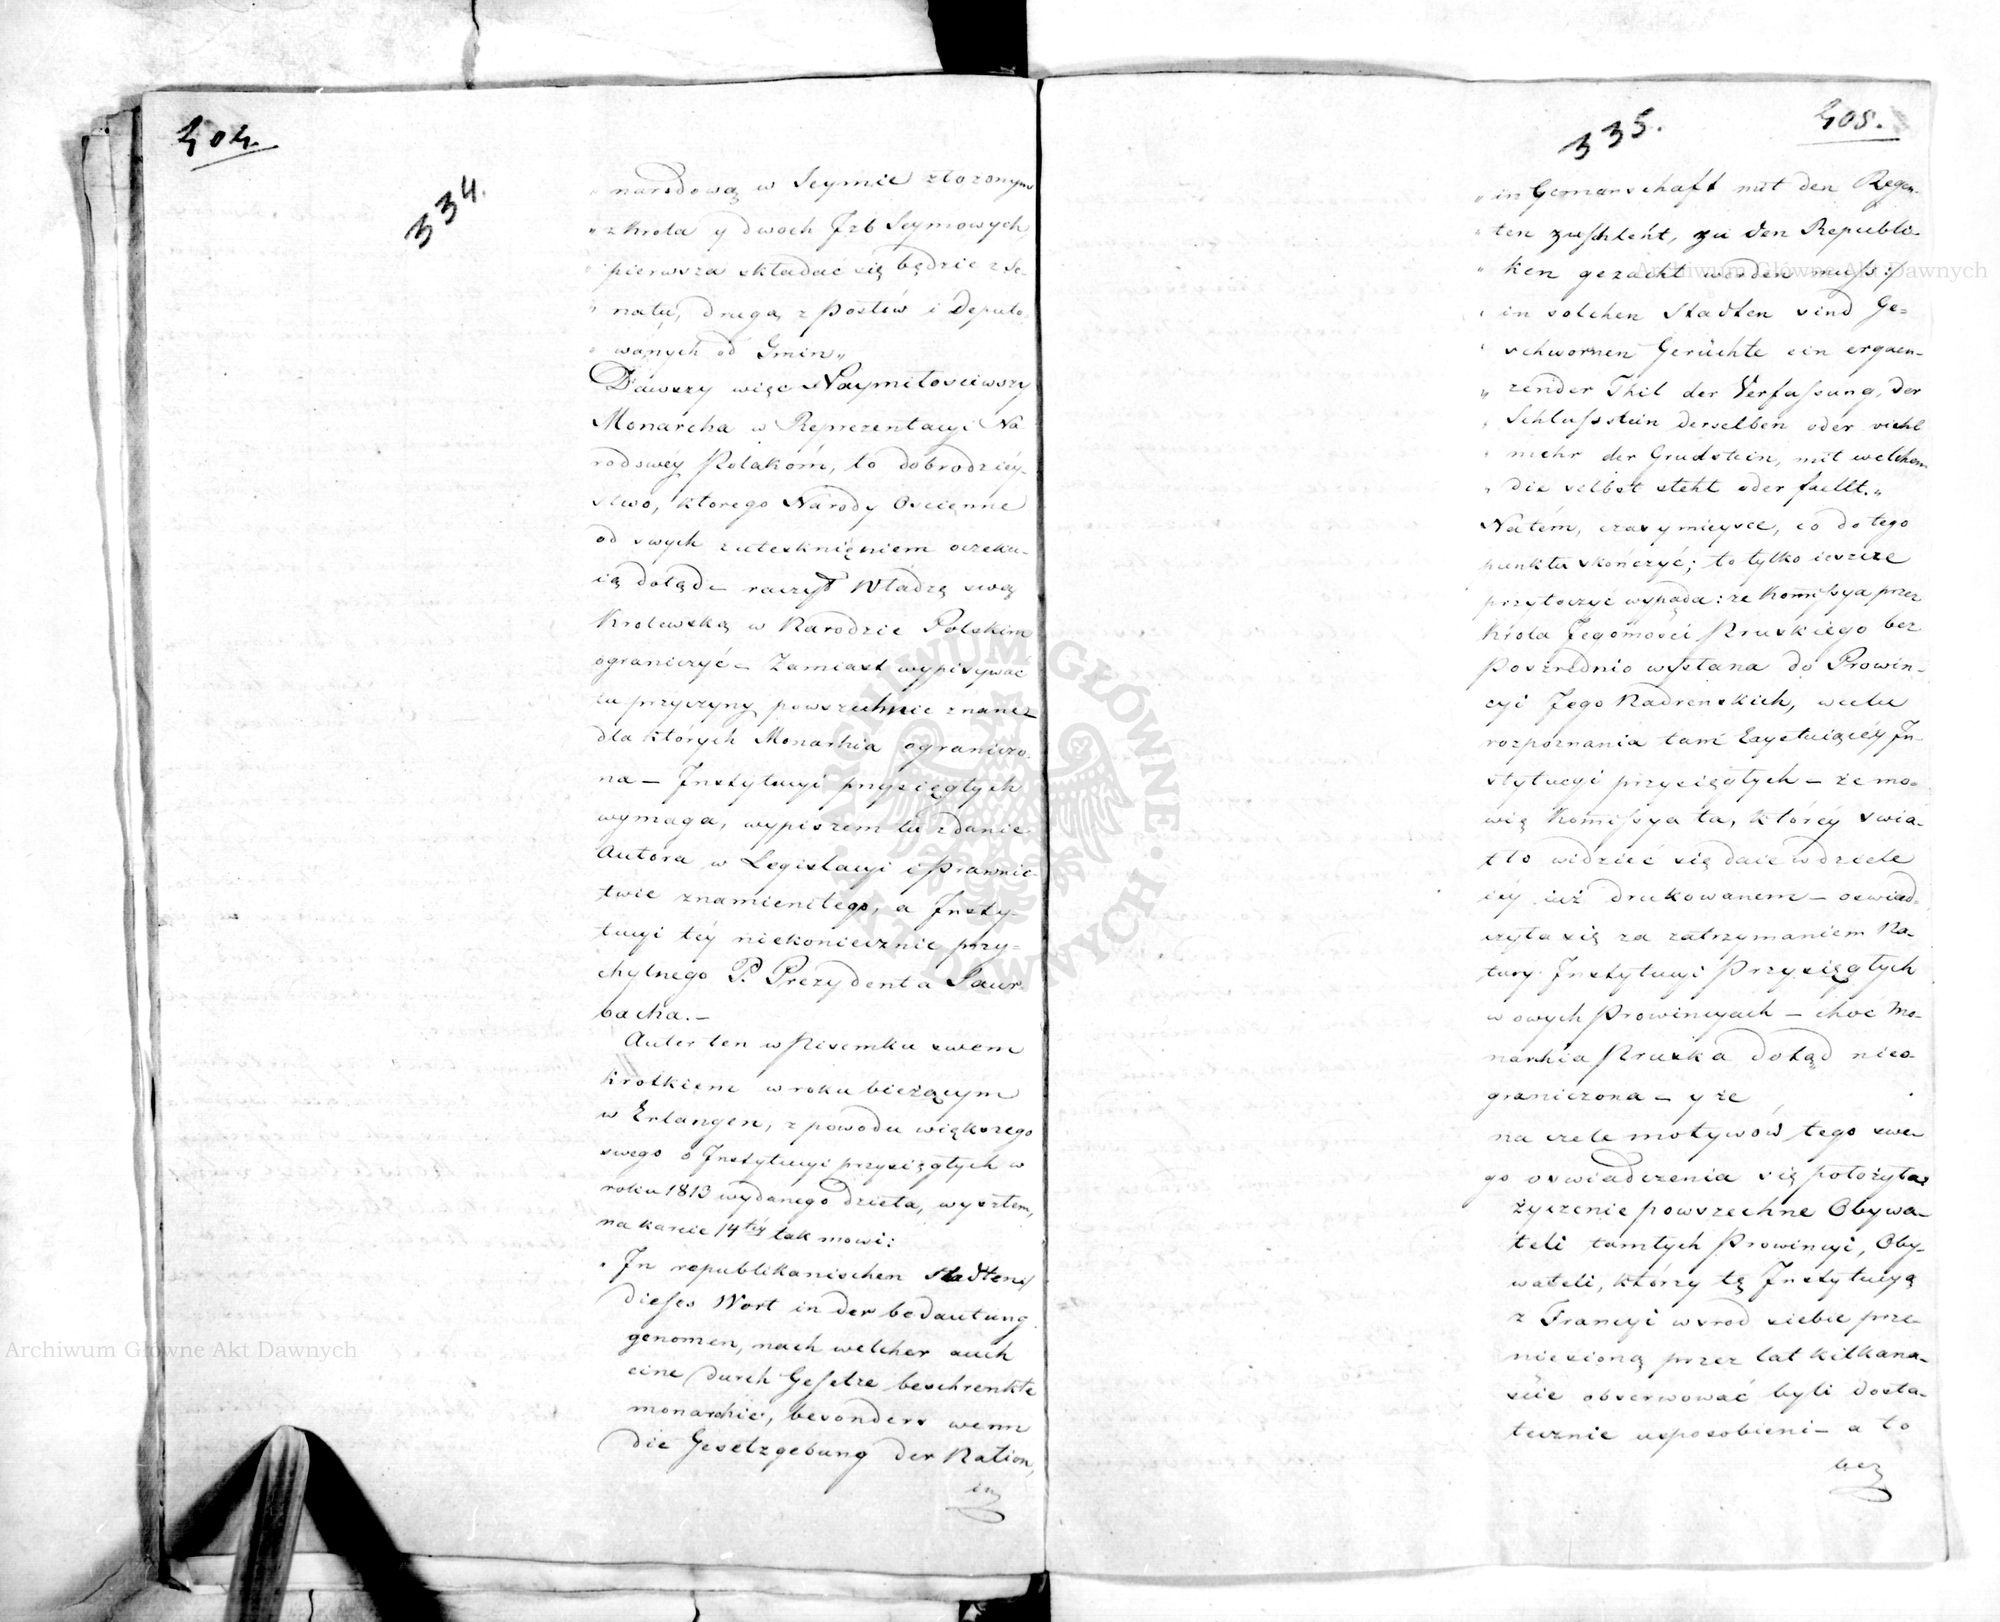 404.
334.
„ narodową w Seymie złożonym
„ z Króla y dwoch Jzb Seymowych,
„ pierwsza składać się będzie z Se-
„ natu, druga z Posłów i Deputo-
„ wanych od Gmin„
Dawszy więc Naymiłościwszy
Monarcha w Reprezentacyi Na
rodowéy Polakom, to dobrodziéy-
stwo, ktorego Narody Oscienne
od swych z utesknięniem oczeku-
ią dotąd – raczył Władzę swą
Krolewską w Narodzie Polskim
ograniczyć – Zamiast wypisywać
tu przyczyny powszechnie znane –
dla których Monarhia ograniczo-
na – Jnstytucyi przysięgłych
wymaga, wypiszem tu zdanie
Autora w Legislacyi i Prawnic-
twie znamienitego, a Jnsty-
tucyi téy niekoniecznie przy-
chylnego P. Prezydenta Faur
bacha. –
Autor ten w Pisemku swem
krotkiem w roku bieżącym
w Erlangen, z powodu większego
swego o Jnstytucyi przysięgłych w
roku 1813 wydanego dzieła, wyszłem,
na karcie 14téy tak mowi:
„ Jn republikanischen Stadten
dieses Wort in der bedautung
genomen, nach welcher auch
eine durch Gesetze beschrenkte
monarchie, besonders wenn
die Gesetzgebung der Nation,
in
335.
405.
„ in Gemanschaft mit den Regen-
„ ten zuschleht, zu den Republi-
„ ken gezacht werden muss:
„ in solchen Stadten sind Ge-
„ schwornen Gerüchte ein ergaen-
„ zender Thil der Verfassung, der
„ Schlussstein derselben oder viehl
„ mehr der Grudstein, mit welchem
„ die selbst steht oder faellt.„
Natém, czas y mieysce, co do tego
punktu skończyć; to tylko ieszcze
przytoczyć wypada: ze Komissya przez
Króla Jegomości Pruskiego bez
Poszrednio wysłana do Prowin-
cyi Jego Nadrenskich, wcelu
rozpoznania tam Exystuiącéy Jn-
stytucyi przysięgłych – że mo-
wię Komissya ta, któréy swia-
tło widzieć się daie w dziele
iéy iuż drukowanem – oswiad-
czyła się za zatrzymaniem Na-
tury Jnstytucyi Przysięgłych
w owych Prowincyach – choć Mo-
narhia Pruska dotąd nieo-
graniczona – y że
na czele motywów tego swe-
go oswiadczenia się położyła
życzenie powszechne Obywa-
teli tamtych Prowincyi, Oby-
wateli, którzy tę Jnstytucyą
z Francyi wsrod siebie prze-
niesioną przez lat kilkana-
scie obserwować byli dosta-
tecznie usposobieni – a to
bez
ARCHIWUM GŁÓWNE AKT DAWNYCH
Archiwum Główne Akt Dawnych
Archiwum Główne Akt Dawnych